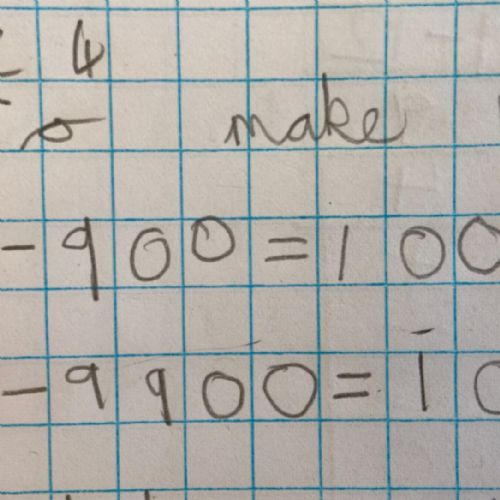 4
to make
-900=100
-9900=10